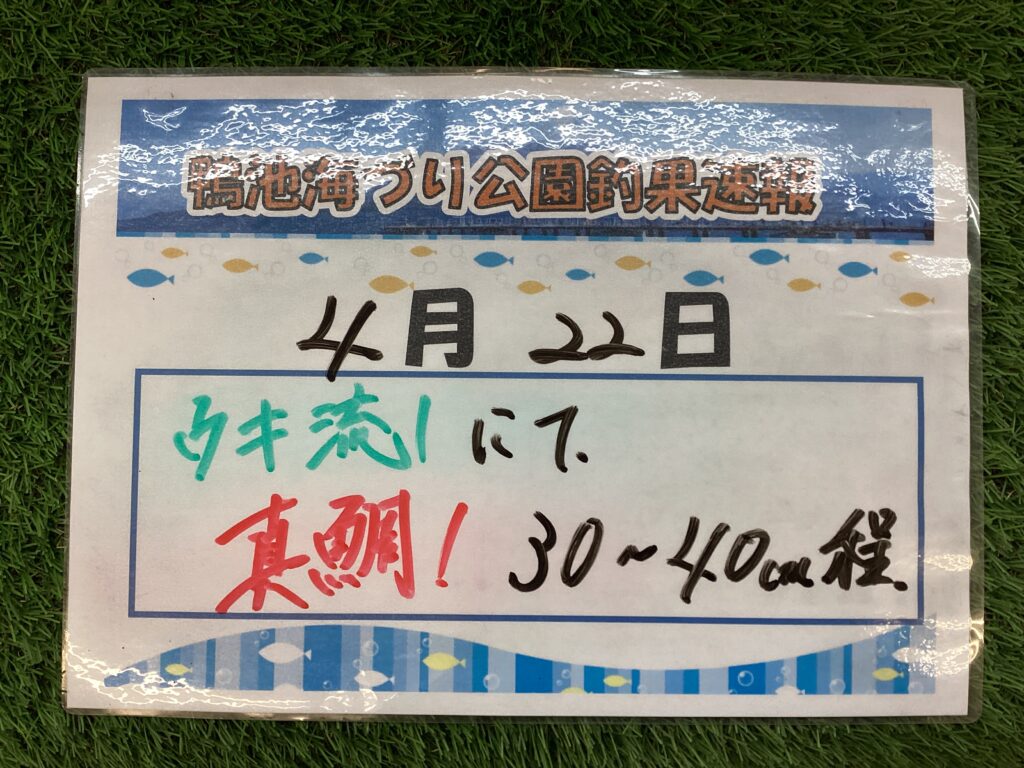 鴨池海づり公園釣果速報
4月 22日
ウキ流し にて.
真鯛! 30～40cm程.